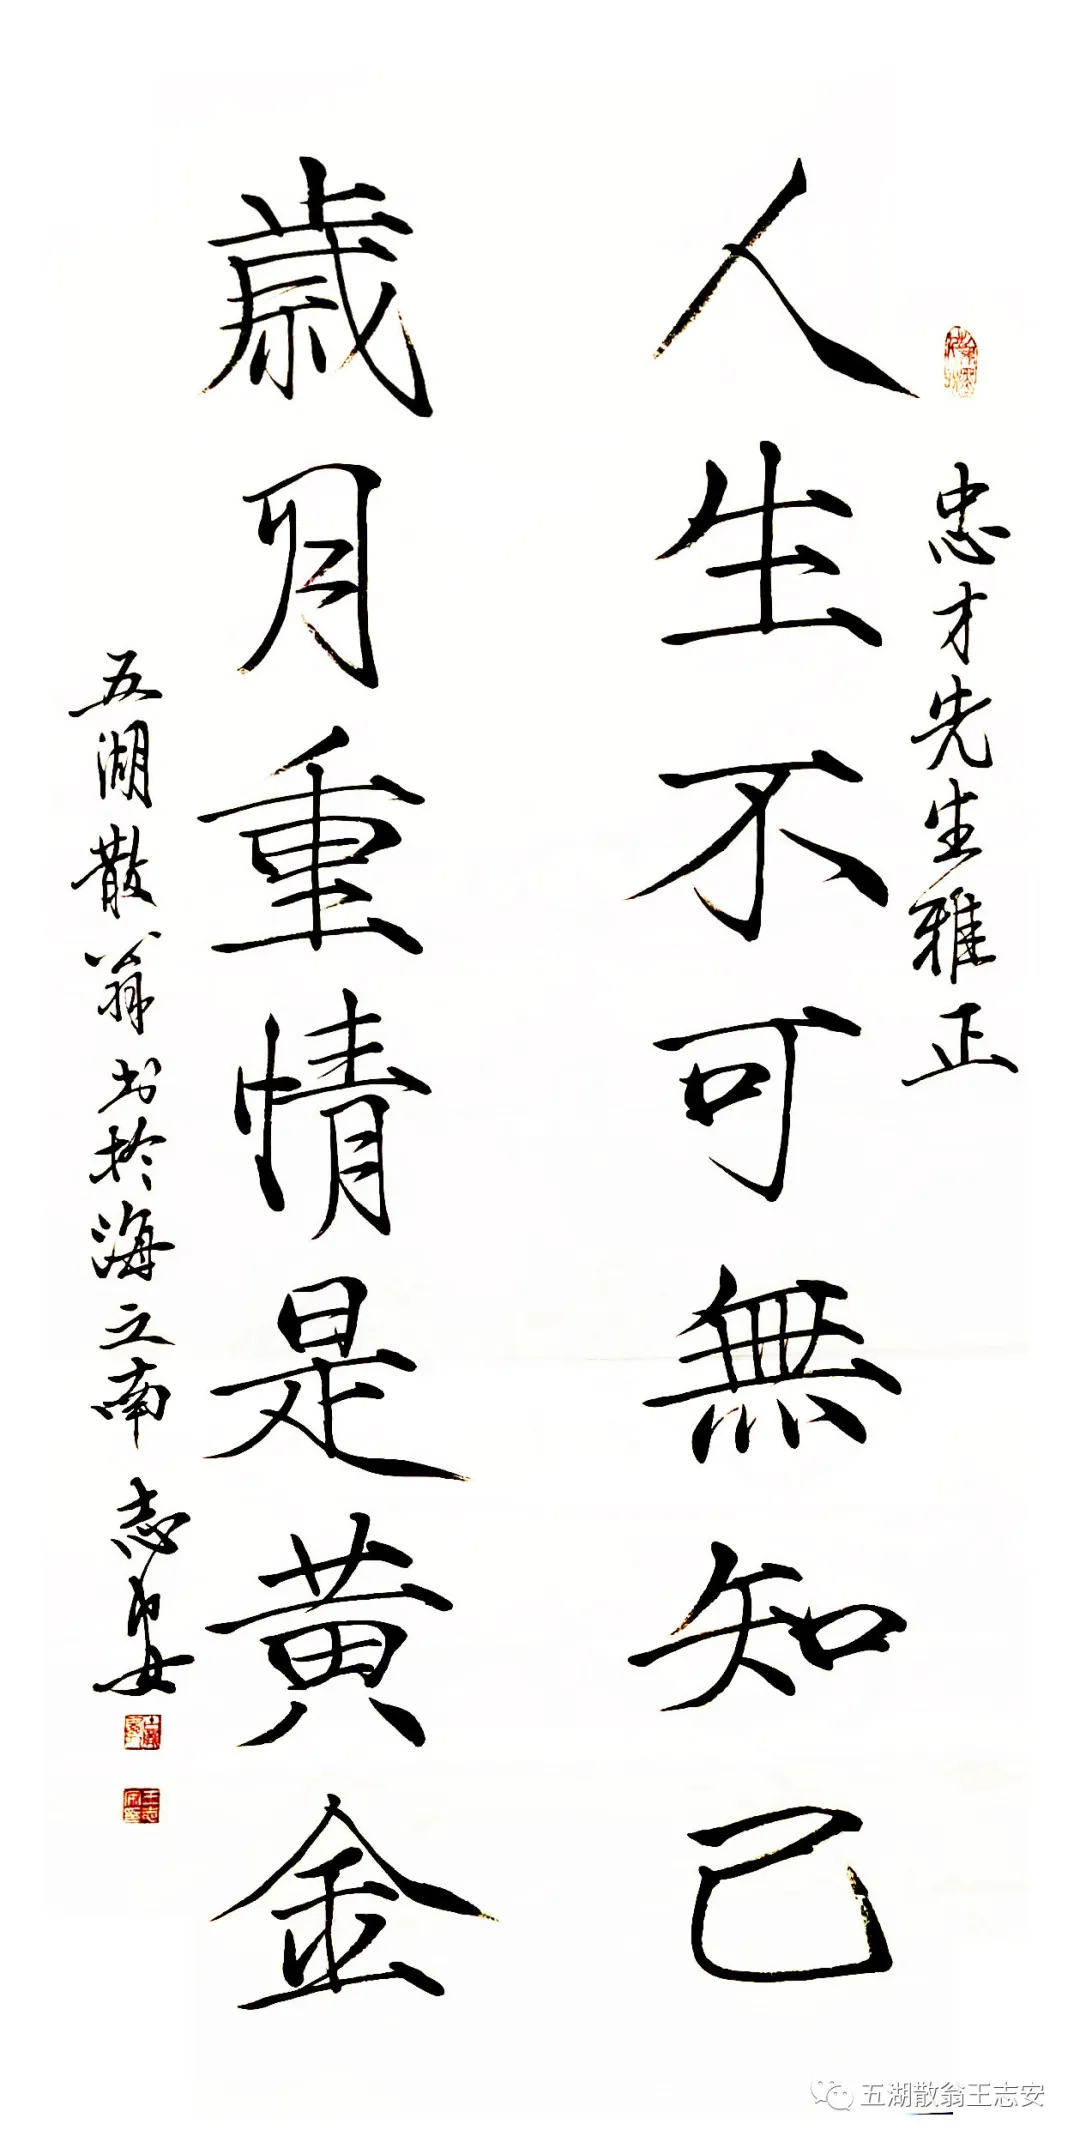 忠才先生雅正
人生不可無知己
歲月重情是黄金
五湖散翁书於海之南 志安
王志安印
五湖散翁王志安